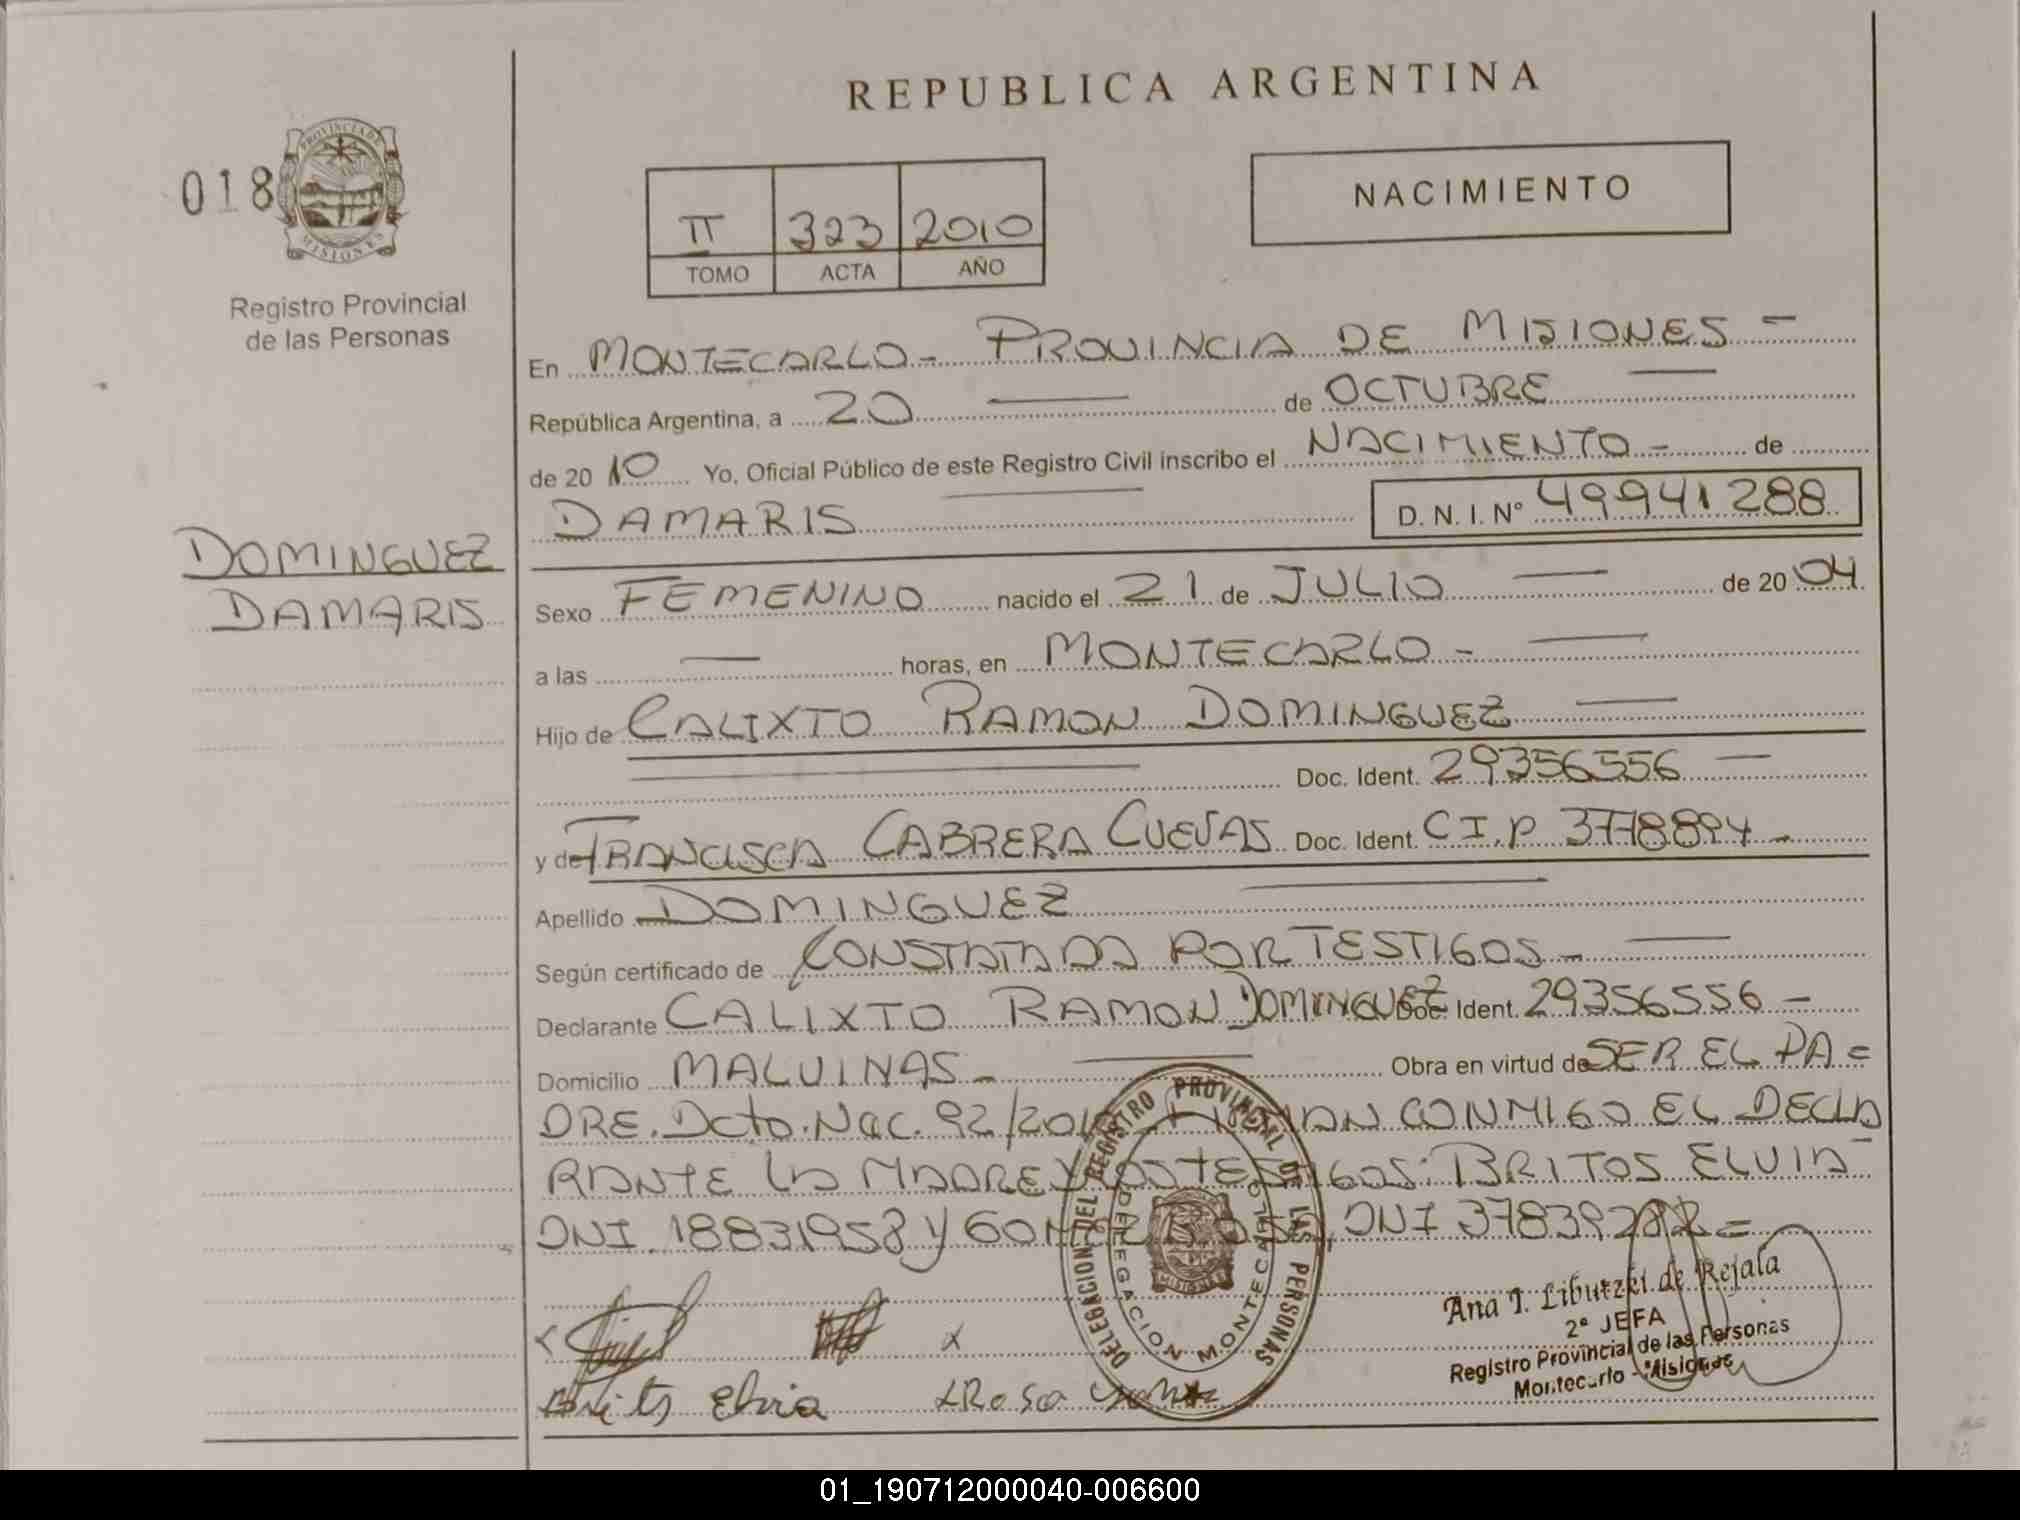 REPUBLICA ARGENTINA
018
PROVINCIA DE
MISIONES
Registro Provincial
de las Personas
II 323 2010
TOMO ACTA AÑO
NACIMIENTO
En MONTECARLO - PROVINCIA DE MISIONES -
República Argentina, a 20 de OCTUBRE
de 20 10 Yo, Oficial Público de este Registro Civil inscribo el NACIMIENTO - de
DAMARIS D. N. I. Nº 49941288
DOMINGUEZ
DAMARIS
Sexo FEMENINO nacido el 21 de JULIO de 20 04
a las horas, en MONTECARLO -
Hijo de CALIXTO RAMON DOMINGUEZ
Doc. Ident. 29356556
y de FRANCISCA CABRERA CUEVAS Doc. Ident. C.I.P. 3778894 -
Apellido DOMINGUEZ
Según certificado de CONSTATADA POR TESTIGOS -
Declarante CALIXTO RAMON DOMINGUEZ Doc. Ident. 29356556 -
Domicilio MALVINAS - Obra en virtud de SER EL PA=
DRE. Dcto. Nac. 92/2010 FIRMAN CONMIGO EL DECLA
RANTE LA MADRE Y LOS TESTIGOS: BRITOS ELVIA -
DNI 18831958 Y GOMEZ ROSA, DNI 37839282 =
DELEGACION DEL REGISTRO PROVINCIAL DE LAS PERSONAS
DELEGACION MONTECARLO
MISIONES
Ana I. Libutzki de Rejala
2ª JEFA
Registro Provincial de las Personas
Montecarlo - Misiones
Brits Elvia x Rosa
01_190712000040-006600